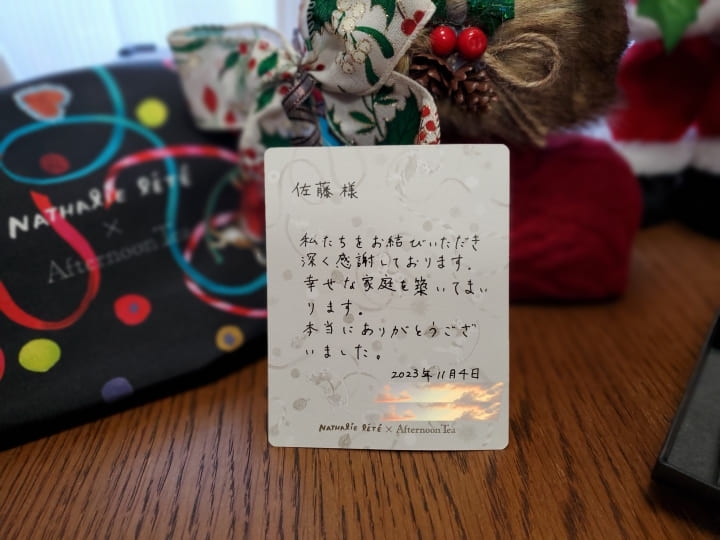 NATHALIE LÉTÉ
×
Afternoon Tea
佐藤様
私たちをお結びいただき
深く感謝しております。
幸せな家庭を築いてまい
ります。
本当にありがとうござ
いました。
2023年11月4日
NATHALIE LÉTÉ × Afternoon Tea